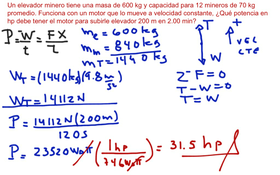 Un elevador minero tiene una masa de 600 kg y capacidad para 12 mineros de 70 kg
promedio. Funciona con un motor que lo mueve a velocidad constante. ¿Qué potencia en
hp debe tener el motor para subirle elevador 200 m en 2.00 min?
P = W/t = FX/t
me = 600 kg
mm = 840 kg
mT = 1440 kg
T
W
+
VEL
CTE
WT = (1440kg)(9.8 m/s²)
WT = 14112N
Σ F = 0
T - W = 0
T = W
P = 14112N(200m)/120s
P = 23520 Watt (1 hp/746 Watt) = 31.5 hp